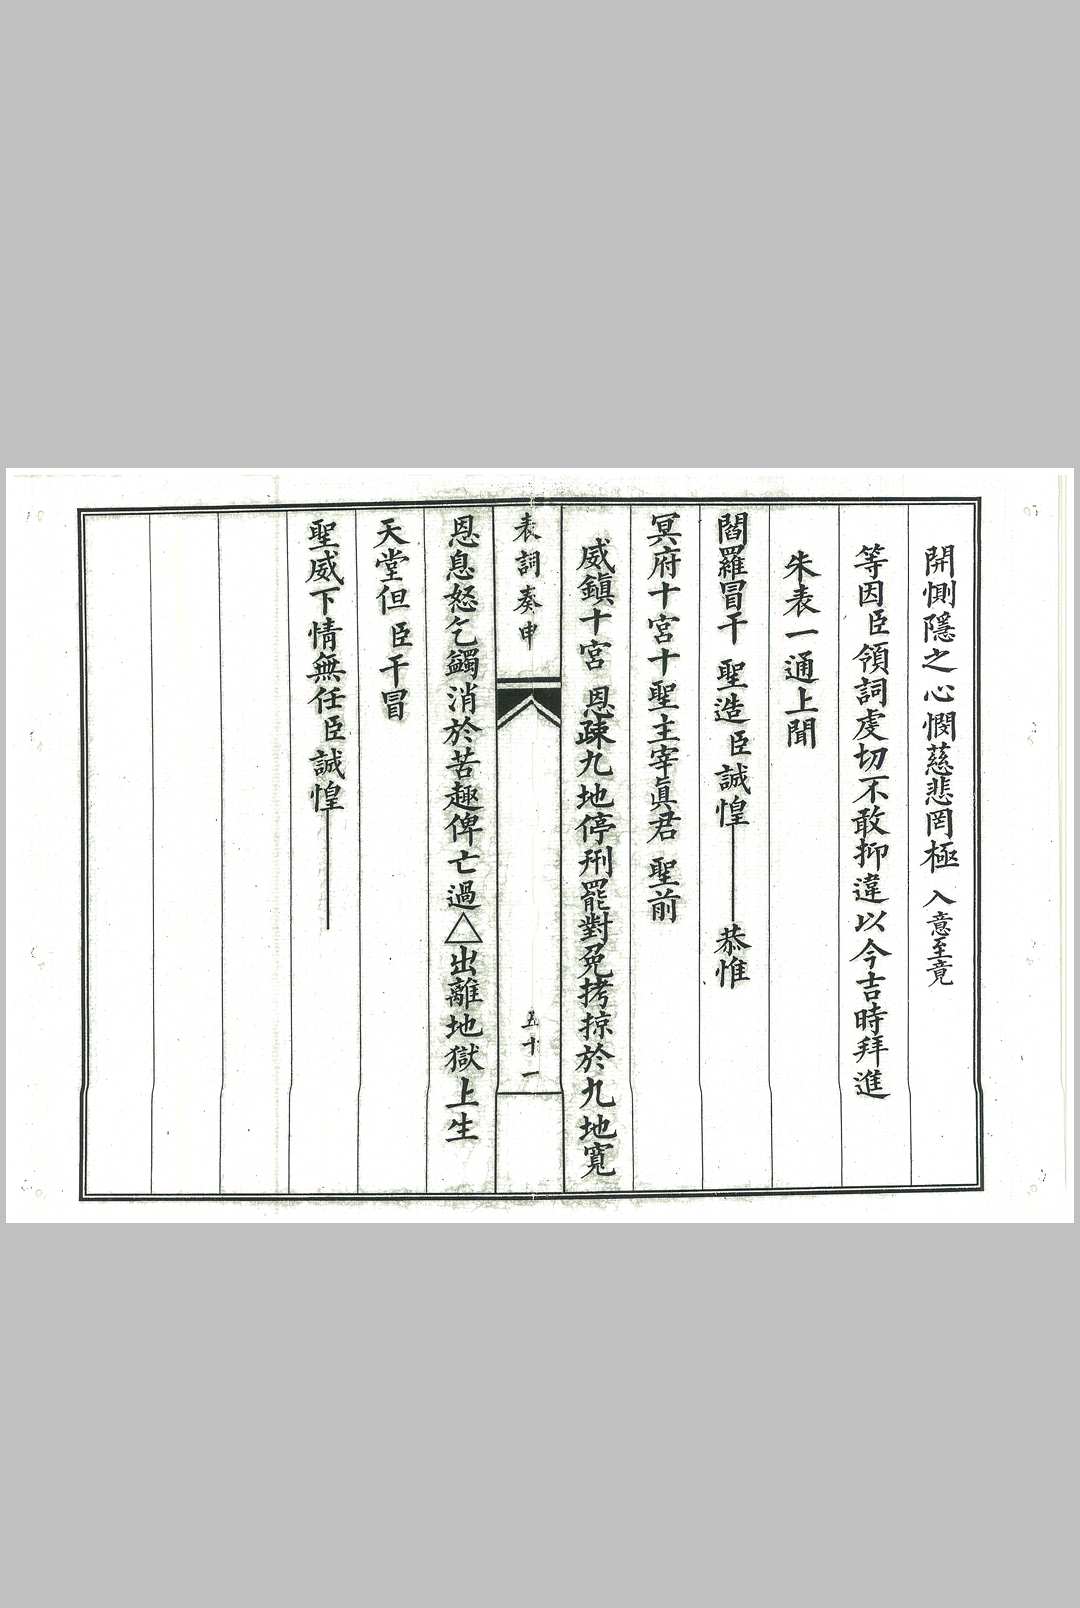 開惻隱之心憫慈悲罔極 入意至竟
等因臣領詞虔切不敢抑違以今吉時拜進
朱表一通上聞
閻羅冒干 聖造臣誠惶——恭惟
冥府十宮十聖主宰眞君 聖前
威鎮十宮 恩疎九地停刑罷對免拷掠於九地寬
表詞奏申 五十一
恩息怒乞蠲消於苦趣俾亡過△出離地獄上生
天堂但臣干冒
聖威下情無任臣誠惶——